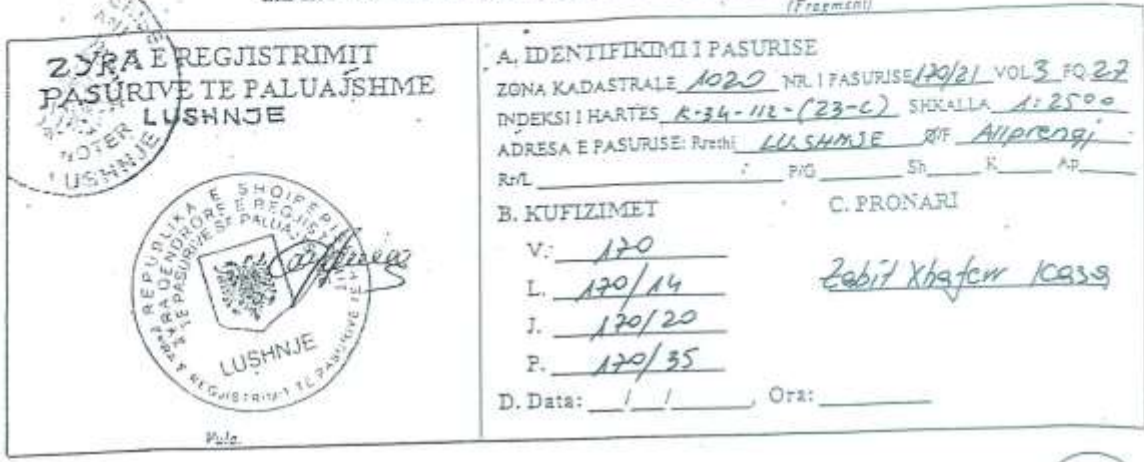 (Fragment)
ZYRA E REGJISTRIMIT
PASURIVE TE PALUAJSHME
LUSHNJE
NOTER
LUSHNJE
REPUBLIKA E SHQIPERISE
LUSHNJE
Vula.
A. IDENTIFIKIMI I PASURISE
ZONA KADASTRALE 1020 NR. I PASURISE 170/21 VOL 3 FQ. 27
INDEKSI I HARTES K-34-112-(23-C) SHKALLA 1:2500
ADRESA E PASURISE: Rrethi LUSHNJE Q/F Allprengj
Rr/L P/G Sh K Ap
B. KUFIZIMET
V.: 170
L. 170/14
J. 170/20
P. 170/35
C. PRONARI
Zabit Xhaferr Kasa
D. Data: __/__/__, Ora: